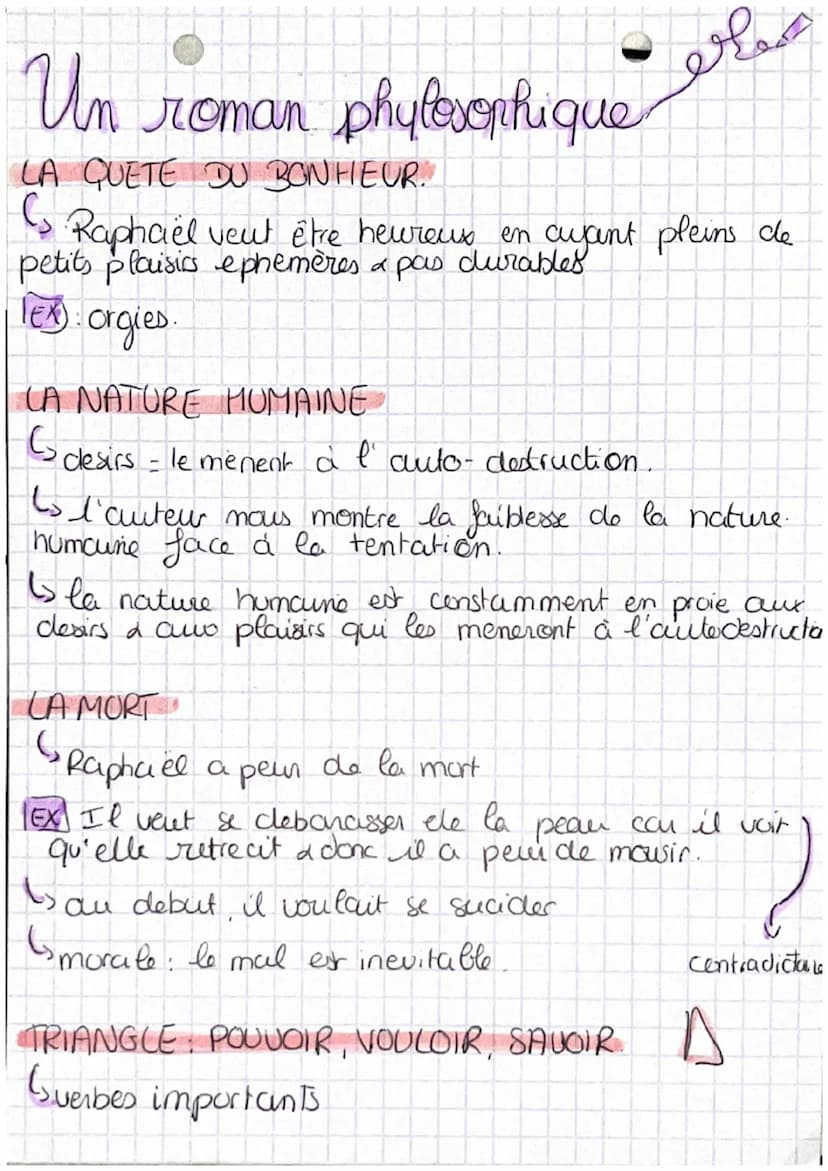 Un roman phylosophique
LA QUETE DU BONHEUR.
↳ Raphaël veut être heureux en ayant pleins de
petits plaisirs ephemères & pas durables
EX : orgies.
LA NATURE HUMAINE
↳ desirs = le mènent à l'auto-destruction.
↳ l'auteur nous montre la faiblesse de la nature
humaine face à la tentation.
↳ la nature humaine est constamment en proie aux
desirs & aux plaisirs qui les meneront à l'autodestructio
LA MORT
↳ Raphaël a peur de la mort
EX Il veut se debarasser de la peau car il voit
qu'elle retrecit & donc il a peur de mourir.
↳ au debut, il voulait se sucider
↳ morale : le mal est inevitable.
contradictoire
TRIANGLE : POUVOIR, VOULOIR, SAVOIR.
↳ verbes importants